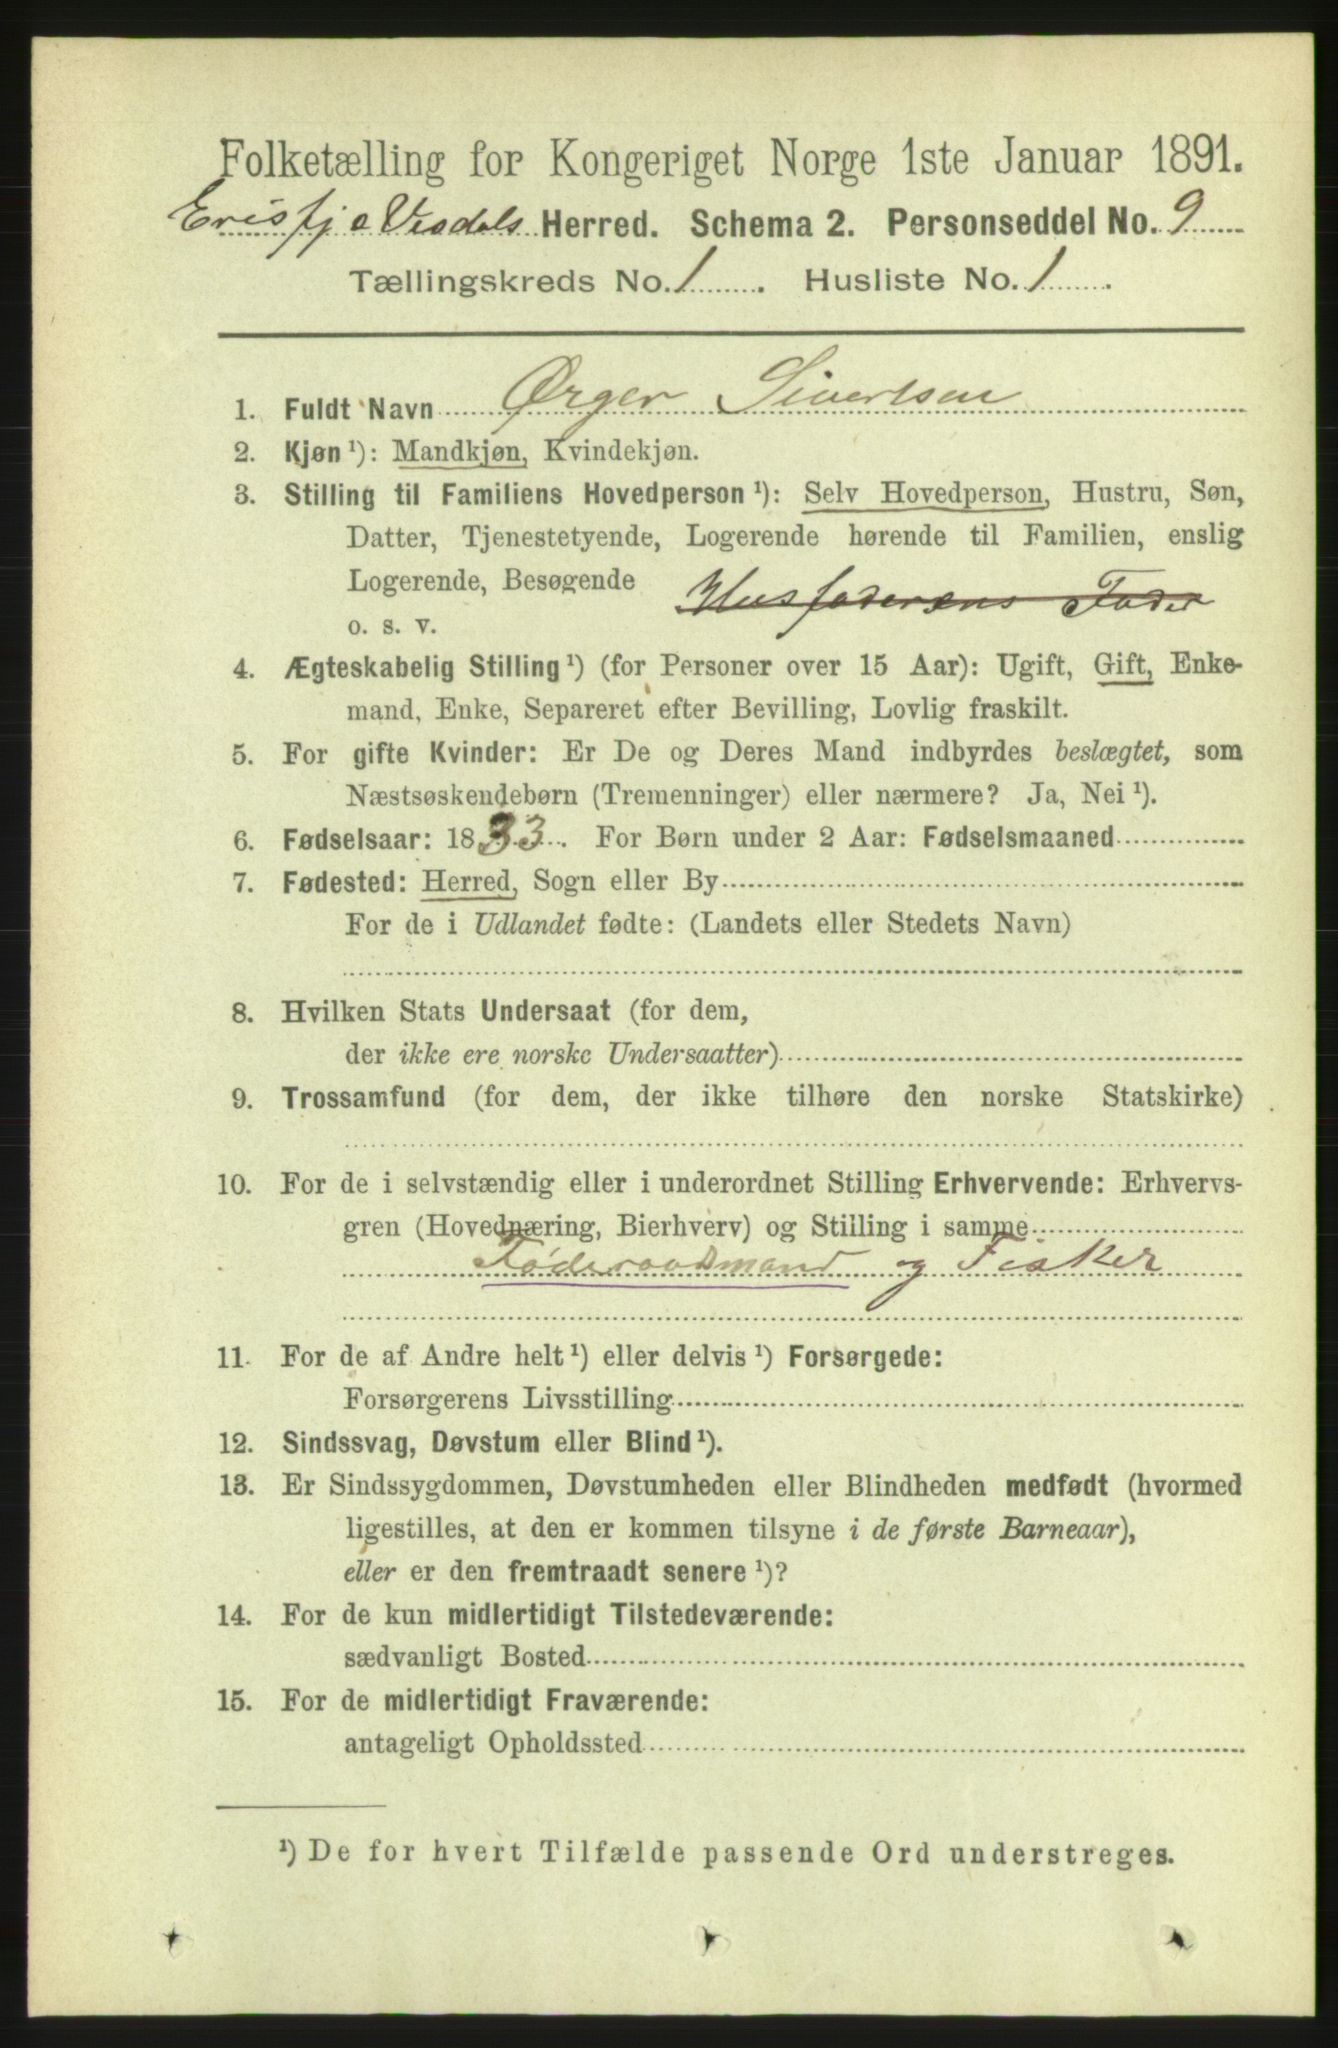 Folketælling for Kongeriget Norge 1ste Januar 1891.
Erisfj o Vistdals Herred. Schema 2. Personseddel No. 9
Tællingskreds No. 1. Husliste No. 1.
1. Fuldt Navn Ørger Sivertsen
2. Kjøn ¹): Mandkjøn, Kvindekjøn.
3. Stilling til Familiens Hovedperson ¹): Selv Hovedperson, Hustru, Søn,
Datter, Tjenestetyende, Logerende hørende til Familien, enslig
Logerende, Besøgende Husfaderens Fader
o. s. v.
4. Ægteskabelig Stilling ¹) (for Personer over 15 Aar): Ugift, Gift, Enke-
mand, Enke, Separeret efter Bevilling, Lovlig fraskilt.
5. For gifte Kvinder: Er De og Deres Mand indbyrdes beslægtet, som
Næstsøskendebørn (Tremenninger) eller nærmere? Ja, Nei ¹).
6. Fødselsaar: 1833. For Børn under 2 Aar: Fødselsmaaned
7. Fødested: Herred, Sogn eller By
For de i Udlandet fødte: (Landets eller Stedets Navn)
8. Hvilken Stats Undersaat (for dem,
der ikke ere norske Undersaatter)
9. Trossamfund (for dem, der ikke tilhøre den norske Statskirke)
10. For de i selvstændig eller i underordnet Stilling Erhvervende: Erhvervs-
gren (Hovednæring, Bierhverv) og Stilling i samme
Føderaadsmand og Fisker
11. For de af Andre helt ¹) eller delvis ¹) Forsørgede:
Forsørgerens Livsstilling
12. Sindssvag, Døvstum eller Blind ¹).
13. Er Sindssygdommen, Døvstumheden eller Blindheden medfødt (hvormed
ligestilles, at den er kommen tilsyne i de første Barneaar),
eller er den fremtraadt senere ¹)?
14. For de kun midlertidigt Tilstedeværende:
sædvanligt Bosted
15. For de midlertidigt Fraværende:
antageligt Opholdssted
¹) De for hvert Tilfælde passende Ord understreges.